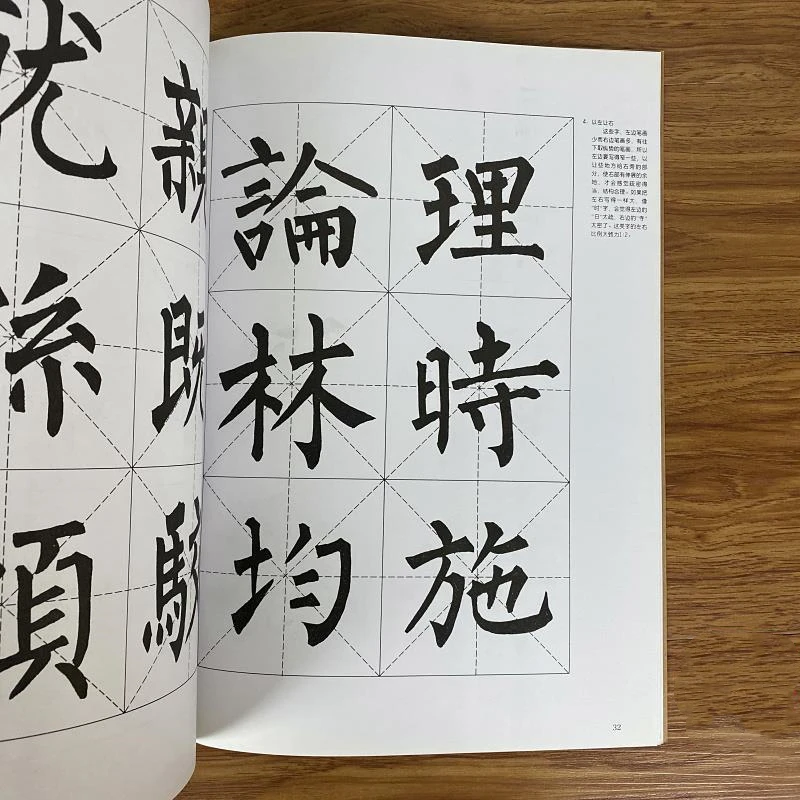 4. 以左让右
这些字，左边笔画
少而右边笔画多，有往
下取纵势的笔画，所以
左边要写得窄一些，以
让些地方给右旁的部
分，使右部有伸展的余
地，才会感觉疏密得
当，结构合理。如果把
左右写得一样大，像
“时”字，会觉得左边的
“日”太疏，右边的“寺”
太密了。这类字的左右
比例大致为1:2。
理時施
論林均
既
32